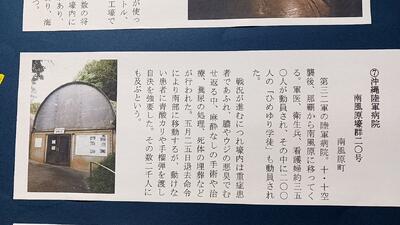 ⑦沖縄陸軍病院
南風原壕群二〇号
南風原町
第三二軍の陸軍病院。十・十空
襲後、那覇から南風原に移ってく
る。軍医、衛生兵、看護婦約三五
〇人が動員され、その中に二〇〇
人の「ひめゆり学徒」も動員され
た。
戦況が進むにつれ壕内は重症患
者であふれ、膿やウジの悪臭でむ
せ返る中、麻酔なしの手術や治
療、糞尿の処理、死体の埋葬など
が行われた。五月二五日退去命令
により南部に移動するが、動けな
い患者に青酸カリや手榴弾を渡し
自決を強要した。その数二千人に
も及ぶという。
が使っ
トル、
工壕で
数の将
壕内に
あり、
り、海